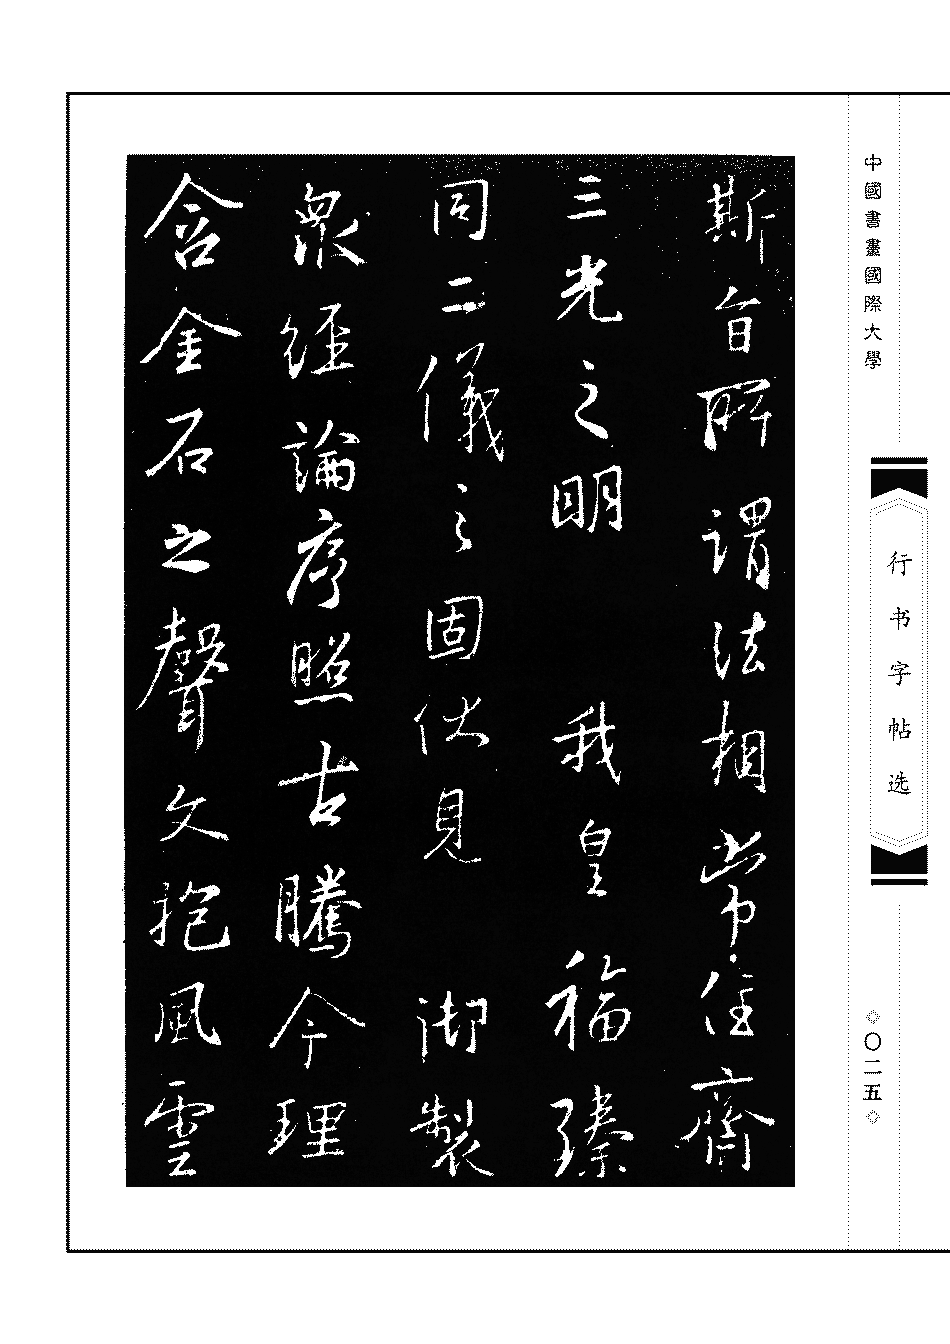 斯旨所謂法相常住齊
三光之明 我皇福臻
同二儀之固伏見 御製
眾經論序照古騰今理
含金石之聲文抱風雲
中國書畫國際大學
行书字帖选
〇二五